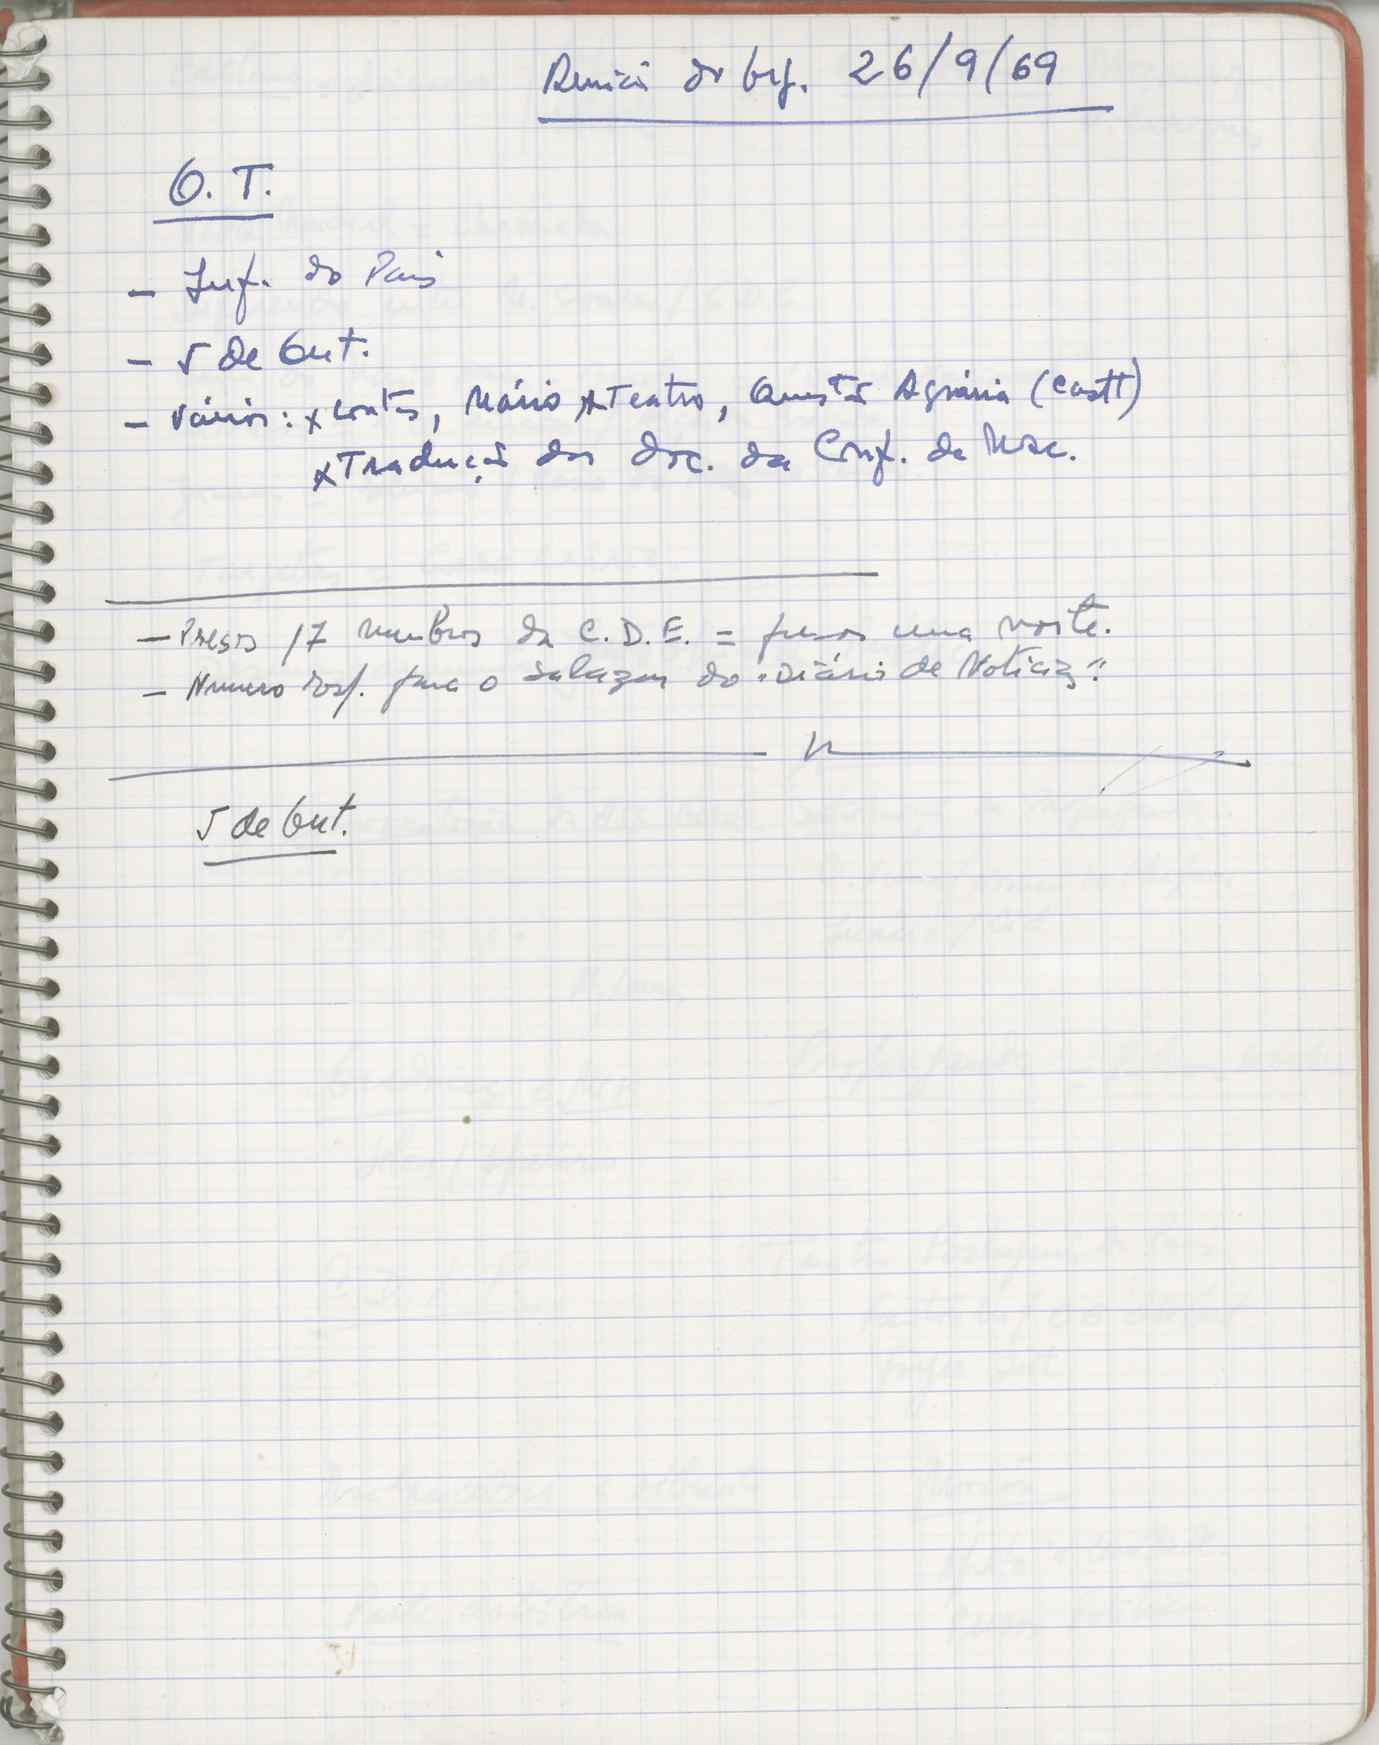 Reunião do Org. 26/9/69
O. T.
- Inf. do País
- 5 de Out.
- Vários: x Contas, Mário, x Teatro, Questão Agrária (Castt)
x Tradução dos doc. da Conf. de Mosc.
- Presos 17 membros da C.D.E. = presos uma noite.
- Numero esp. para o Salazar do "Diário de Noticias".
5 de Out.